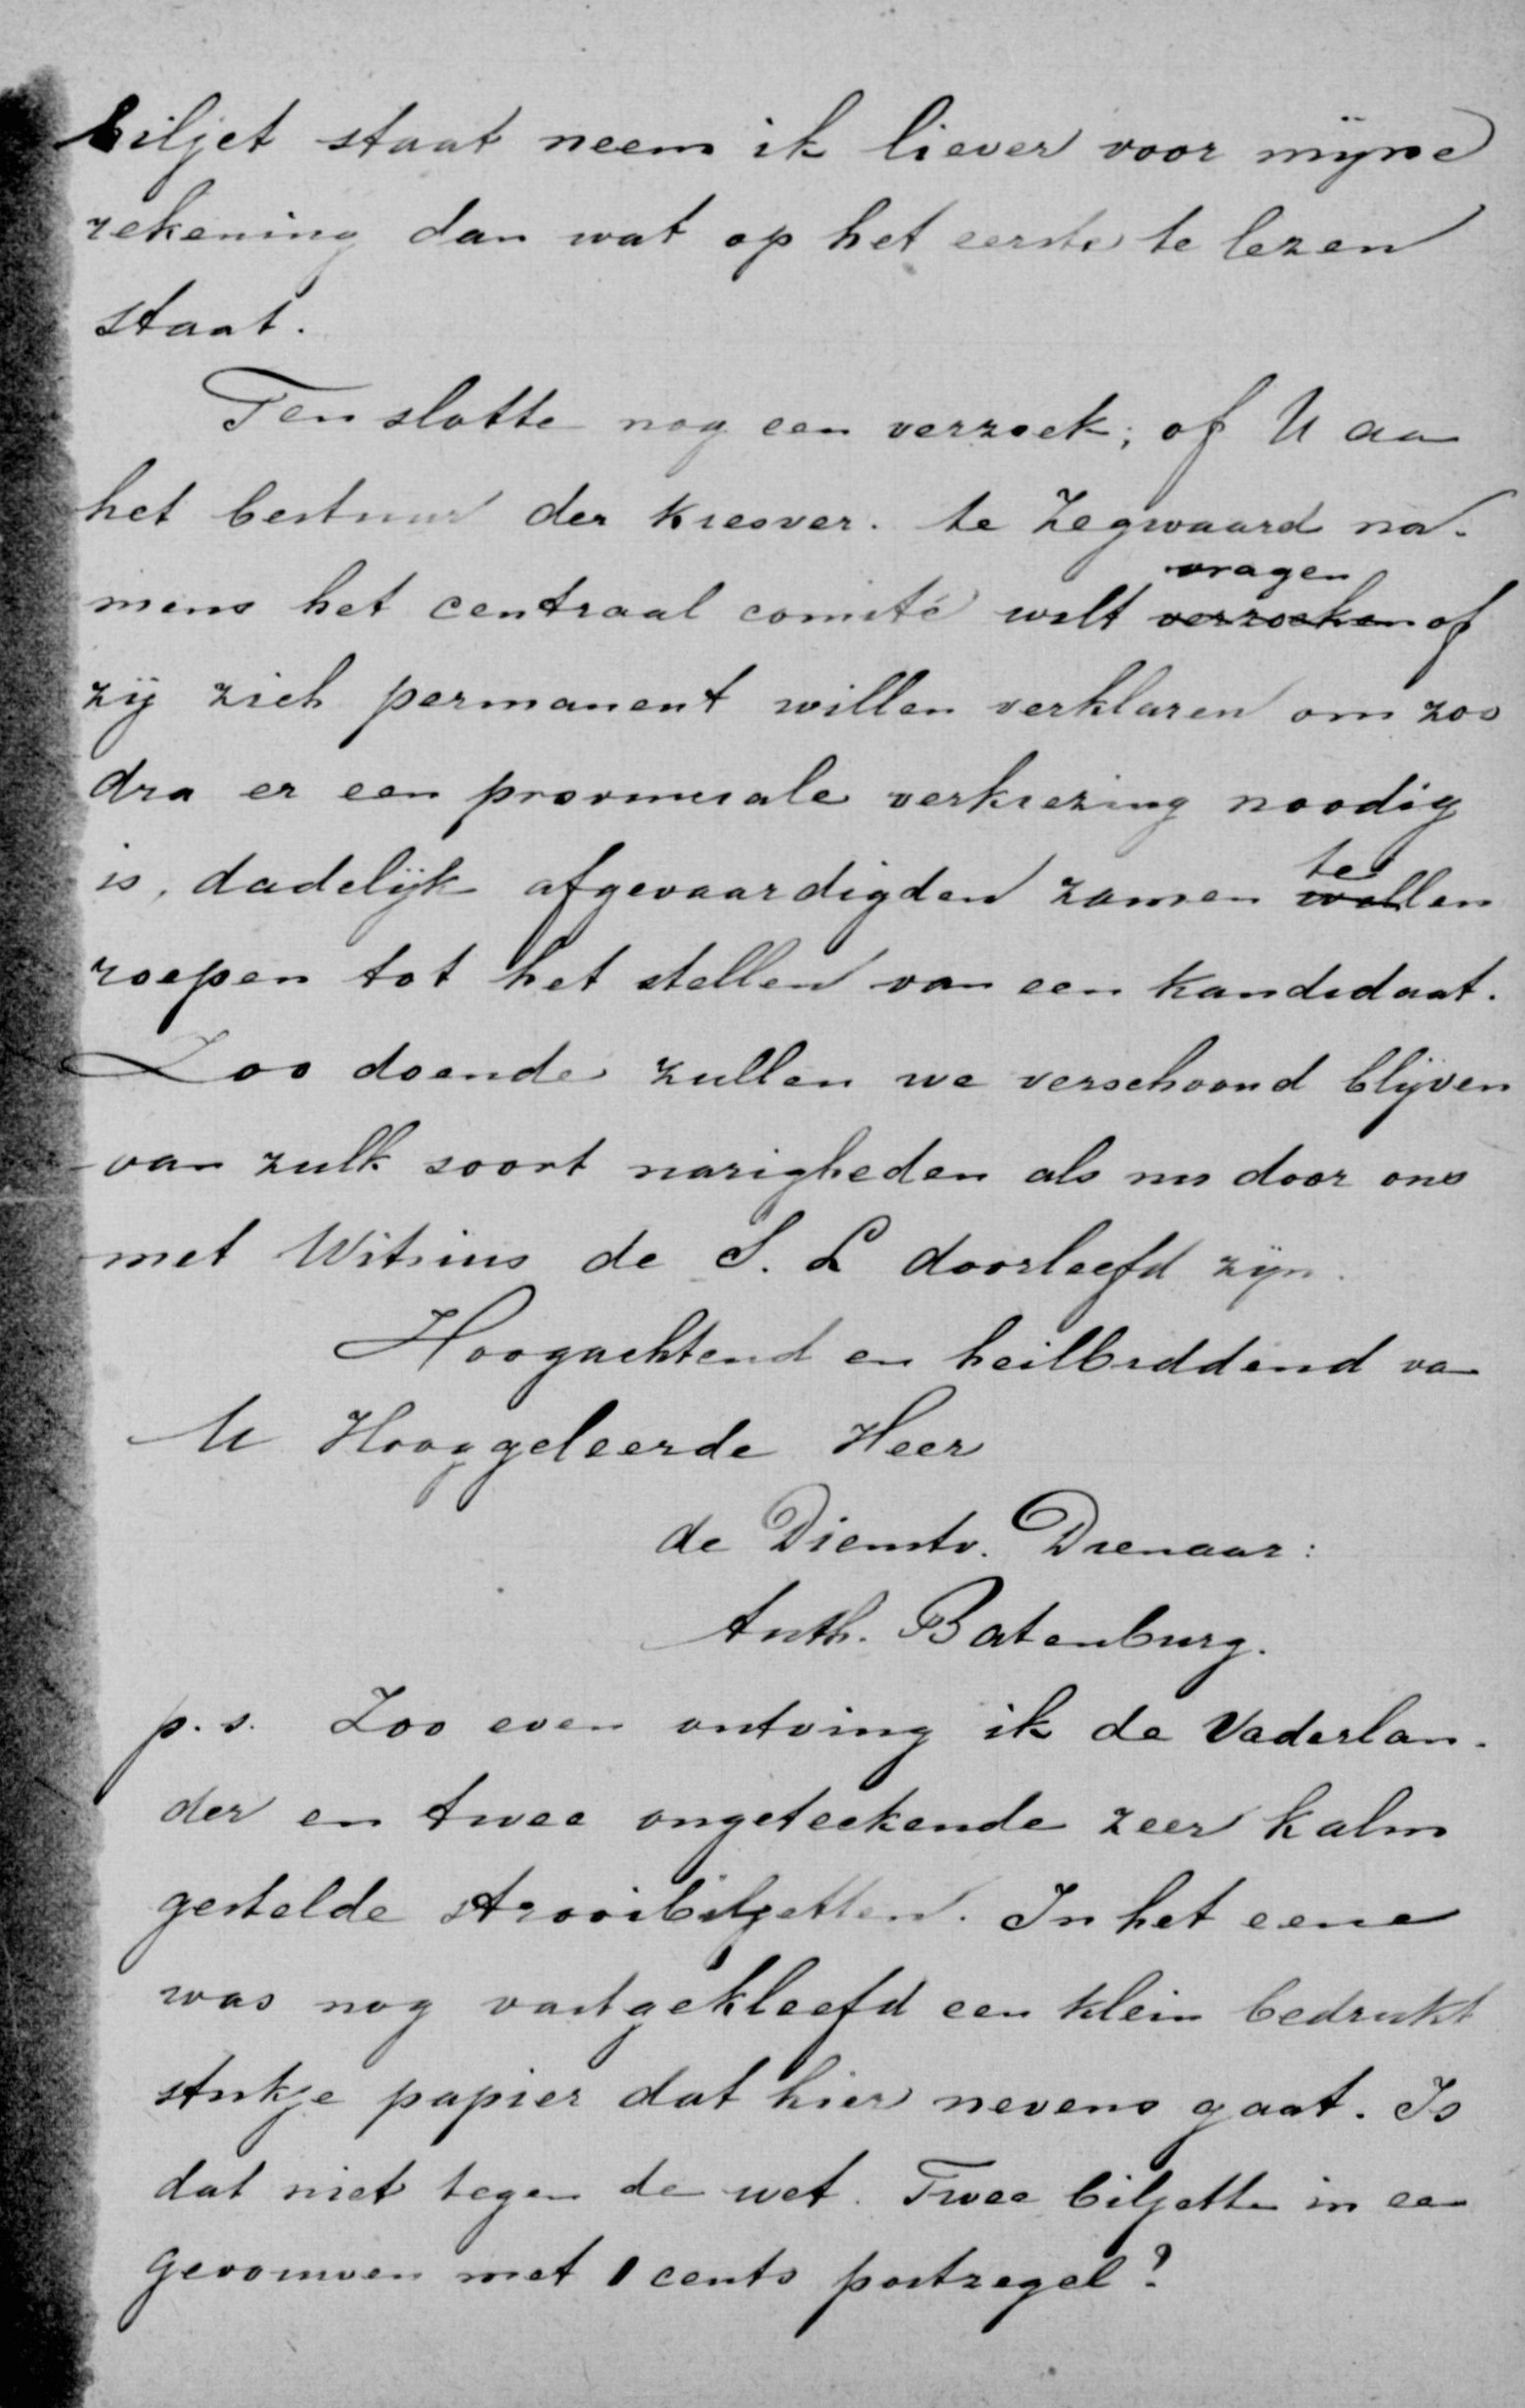 biljet staat neem ik liever voor mijne
rekening dan wat op het eerste te lezen
staat.
Ten slotte nog een verzoek; of U aan
het bestuur der kiesver. te Zegwaard na-
mens het centraal comité wilt verzoeken vragen of
zij zich permanent willen verklaren om zoo
dra er een provinciale verkiezing noodig
is, dadelijk afgevaardigden zamen willen te
roepen tot het stellen van een kandidaat.
Zoo doende zullen we verschoond blijven
van zulk soort narigheden als nu door ons
met Witsius de S. L doorleefd zijn.
Hoogachtend en heilbiddend van
U Hooggeleerde Heer
de Dienstv. Dienaar:
Anth. Batenburg.
p.s. Zoo even ontving ik de Vaderlan-
der en twee ongeteekende zeer kalm
gestelde strooibiljetten. In het eene
was nog vastgekleefd een klein bedrukt
stukje papier dat hier nevens gaat. Is
dat niet tegen de wet. Twee biljetten in een
gevouwen met 1 cents postzegel?